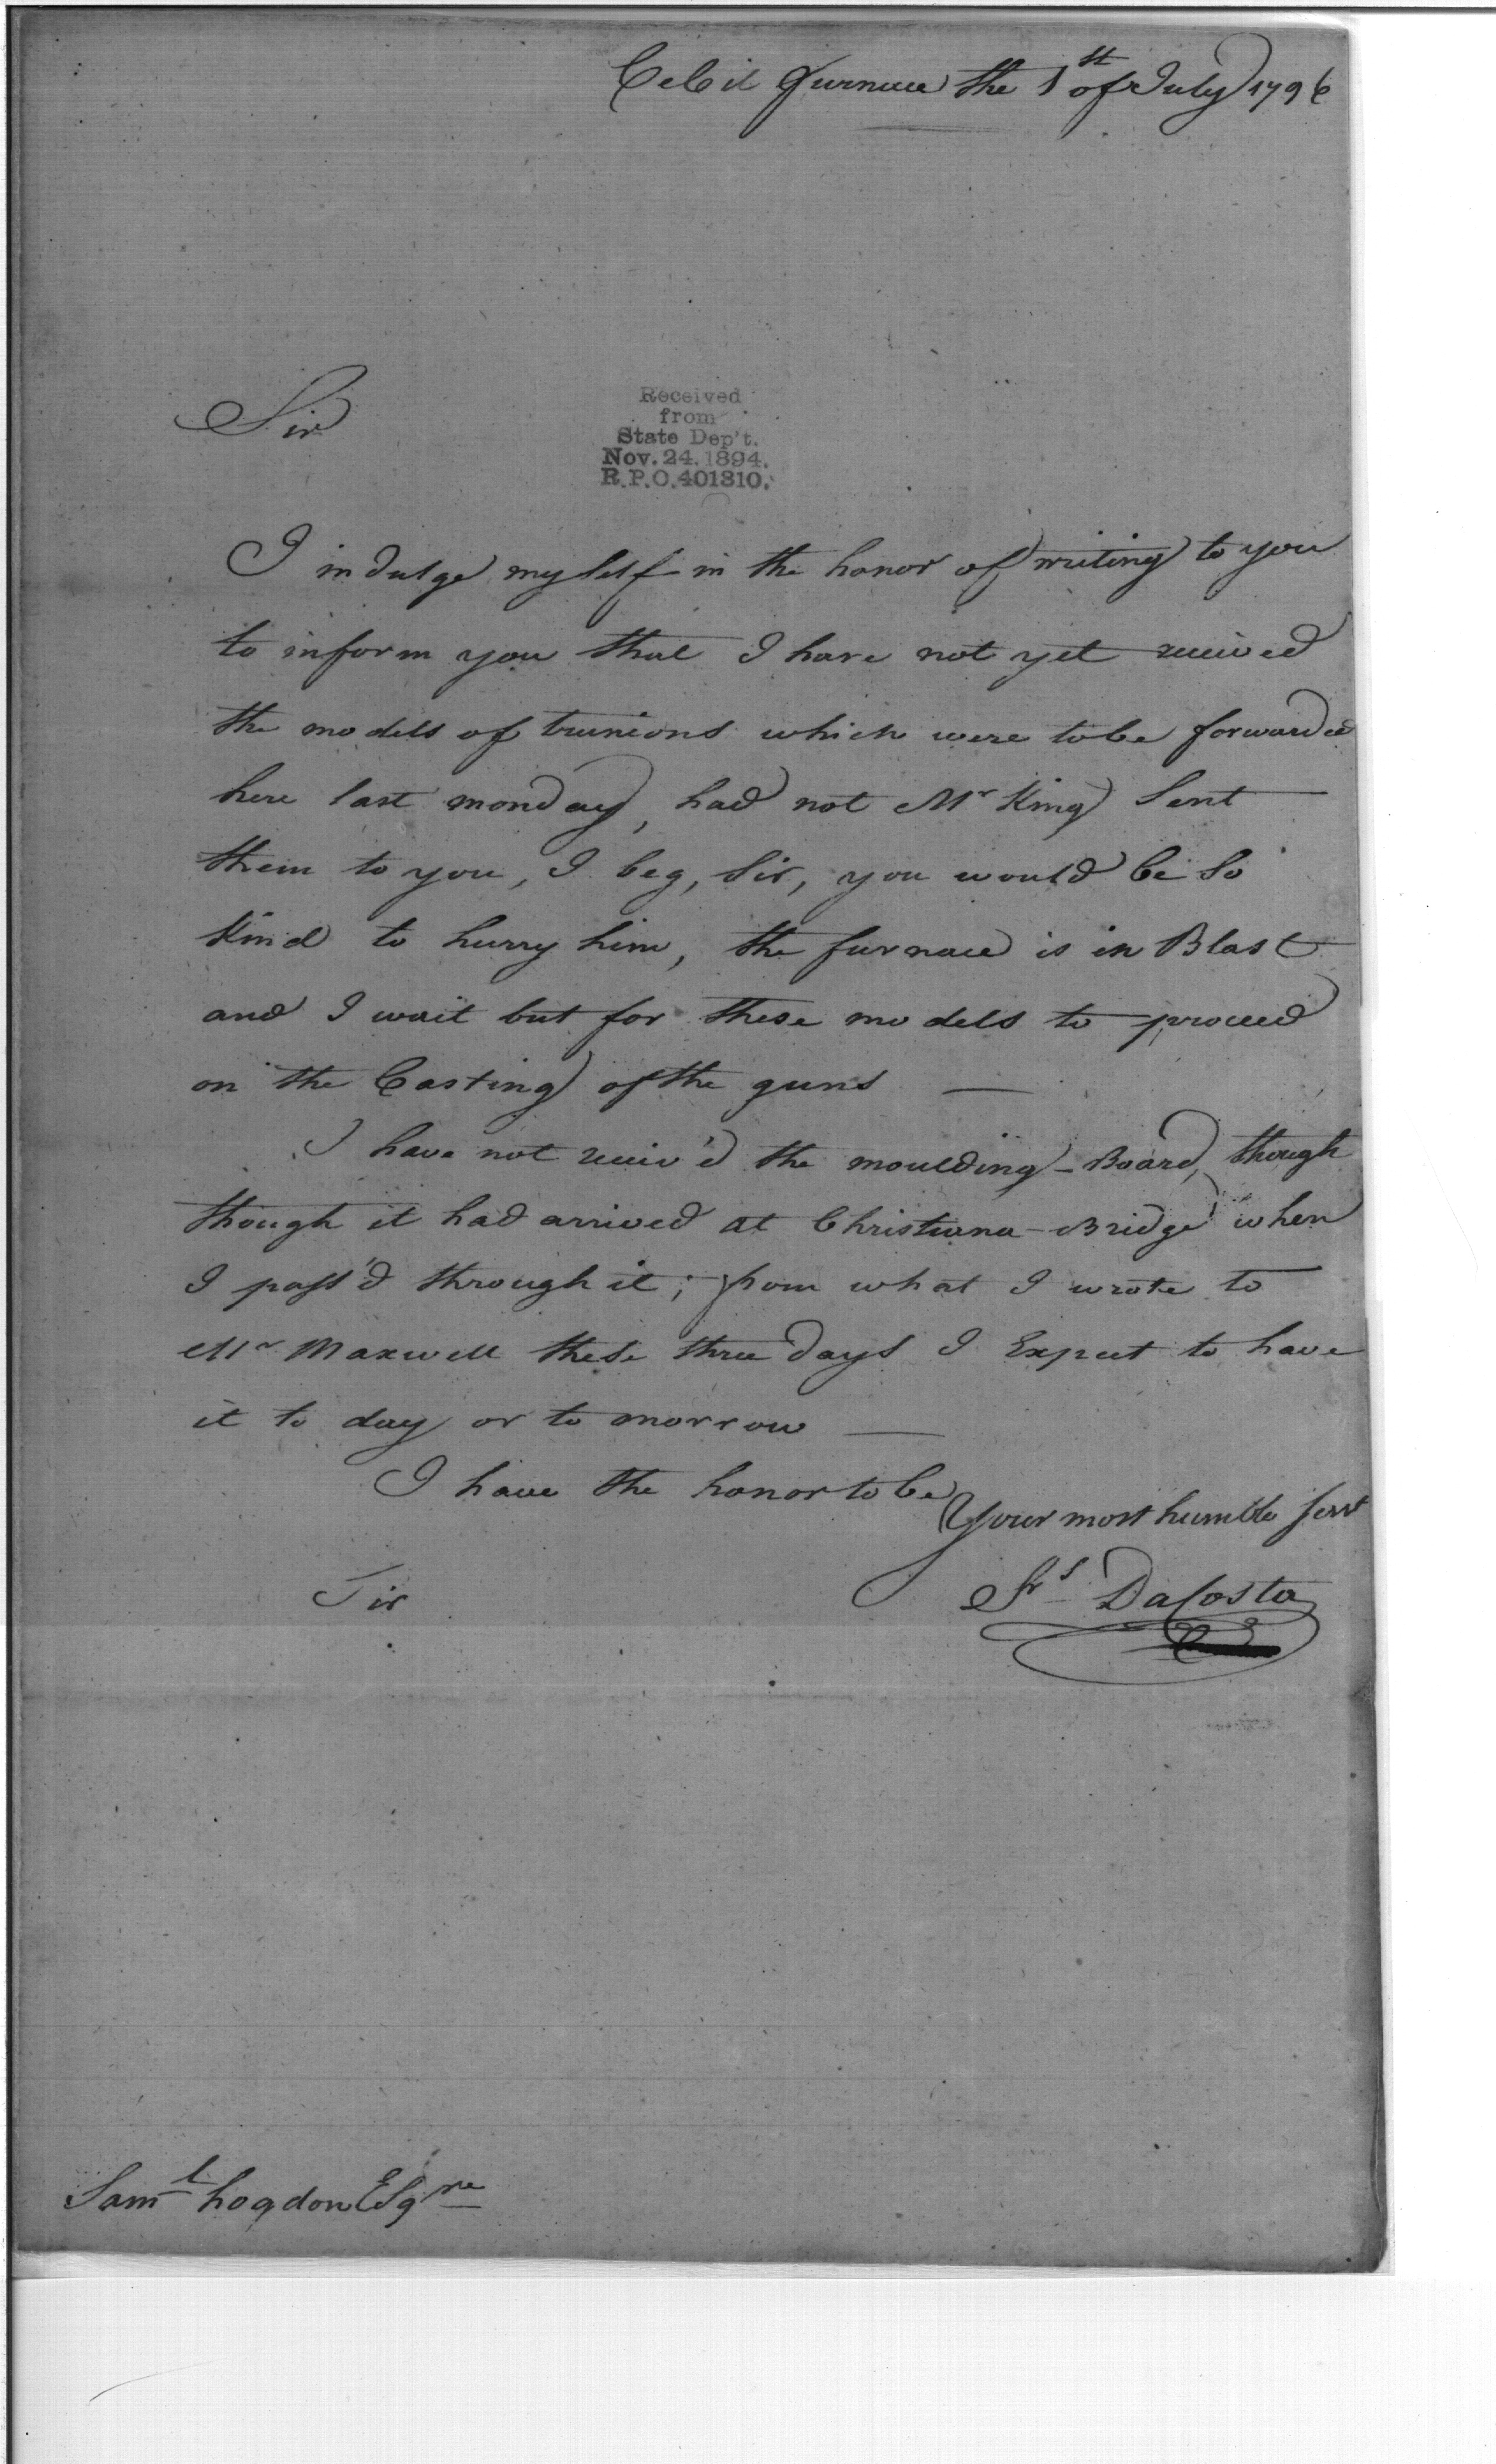 CeCil furnace the 1st of July 1796
Sir
Received
from
State Dep't.
Nov. 24. 1894.
R.P.O. 401310.
I indulge my self in the honor of writing to you
to inform you that I have not yet received
the models of trunions which were to be forwarded
here last monday, had not Mr King Sent
them to you, I beg, Sir, you would be So
Kind to hurry him, the furnace is in Blast
and I wait but for these models to proceed
on the Casting of the guns —
I have not receiv'd the moulding-Board, though
though it had arrived at Christiana-Bridge when
I pass'd through it; from what I wrote to
Mr Maxwell these three days I Expect to have
it to day or to morrow —
I have the honor to be
Your most humble Servt
Sir
Frs DaCosta
Saml hogdon Esqre